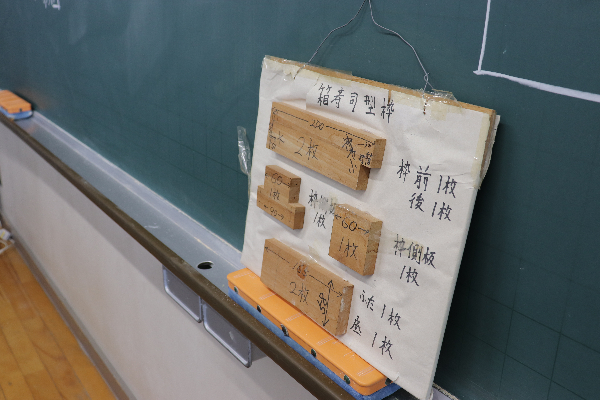 箱寿司型枠
200
2枚
枠前 1枚
後 1枚
60
1枚
1枚
60
1枚
枠側板
1枚
2枚
ふた 1枚
底 1枚